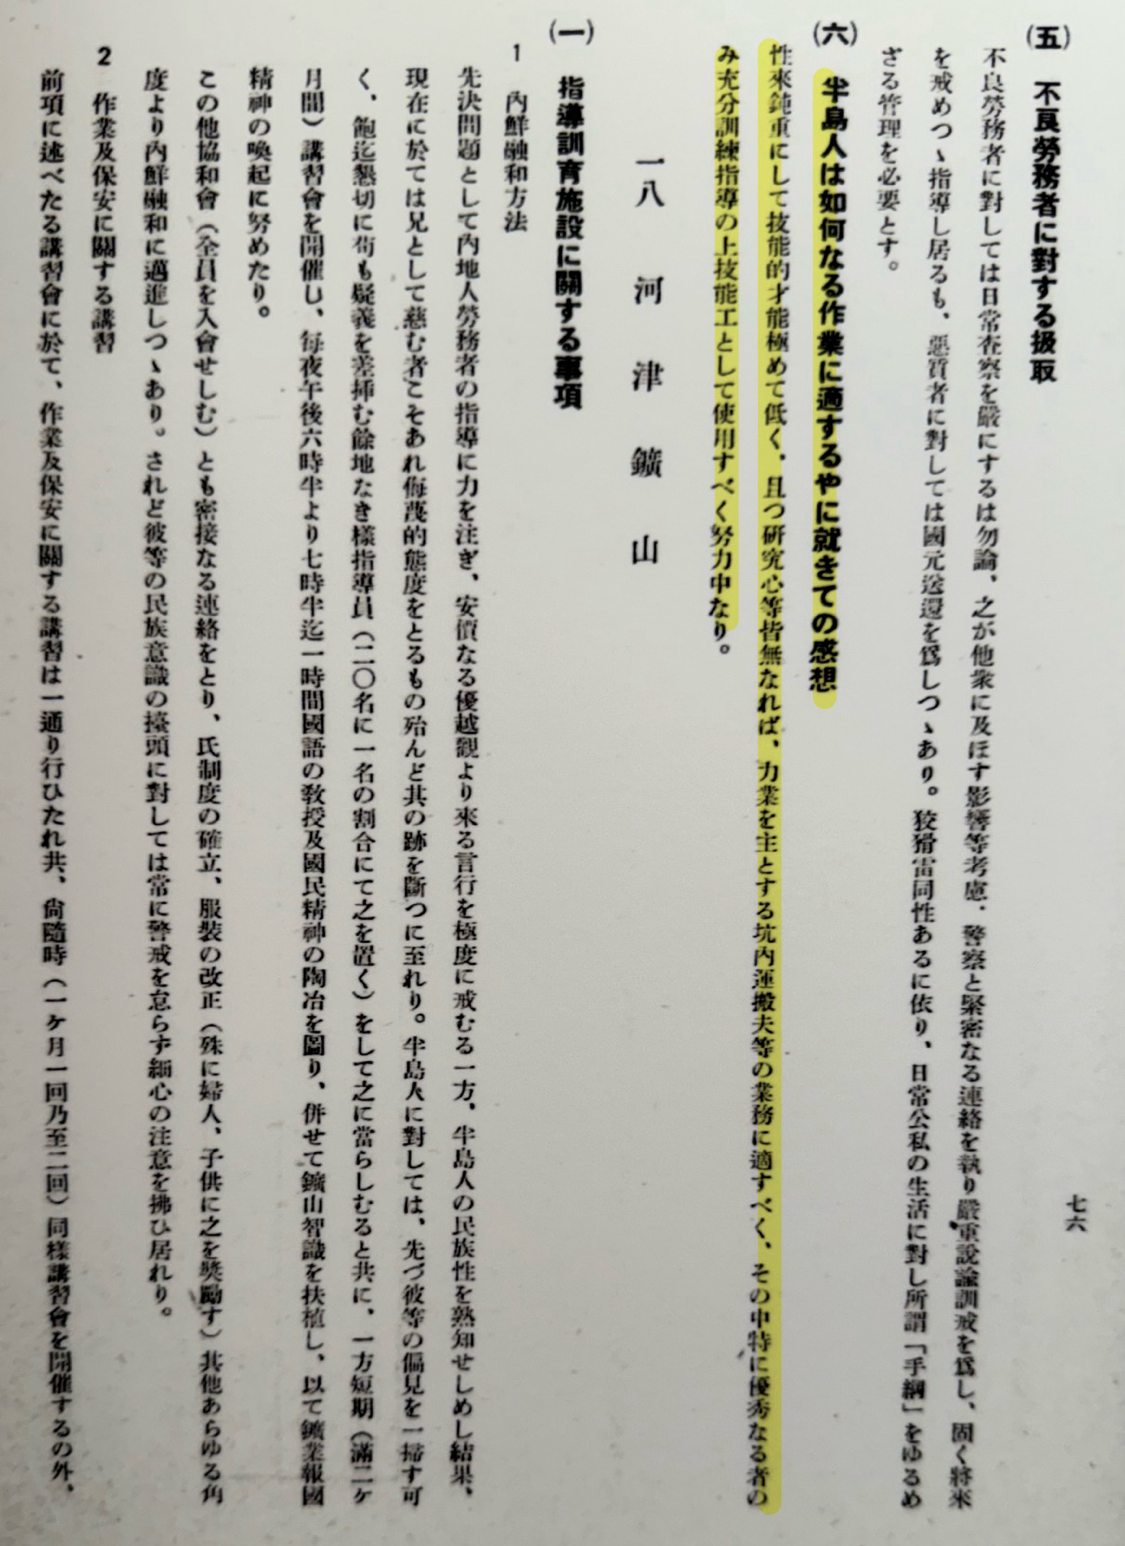 七六
(五) 不良勞務者に對する扱取
不良勞務者に對しては日常査察を嚴にするは勿論、之が他衆に及ぼす影響等考慮、警察と緊密なる連絡を執り嚴重說諭訓戒を爲し、固く將來
を戒めつゝ指導し居るも、惡質者に對しては國元送還を爲しつゝあり。狡猾雷同性あるに依り、日常公私の生活に對し所謂「手綱」をゆるめ
ざる管理を必要とす。
(六) 半島人は如何なる作業に適するやに就きての感想
性來鈍重にして技能的才能極めて低く、且つ硏究心等皆無なれば、力業を主とする坑內運搬夫等の業務に適すべく、その中特に優秀なる者の
み充分訓練指導の上技能工として使用すべく努力中なり。
一八 河津鑛山
(一) 指導訓育施設に關する事項
1 內鮮融和方法
先決問題として內地人勞務者の指導に力を注ぎ、安價なる優越觀より來る言行を極度に戒むる一方、半島人の民族性を熟知せしめし結果、
現在に於ては兄として慈む者こそあれ侮蔑的態度をとるもの殆んど其の跡を斷つに至れり。半島人に對しては、先づ彼等の偏見を一掃す可
く、飽迄懇切に苟も疑義を差揷む餘地なき樣指導員(二〇名に一名の割合にて之を置く)をして之に當らしむると共に、一方短期(滿二ケ
月間)講習會を開催し、每夜午後六時半より七時半迄一時間國語の敎授及國民精神の陶冶を圖り、併せて鑛山智識を扶植し、以て鑛業報國
精神の喚起に努めたり。
この他協和會(全員を入會せしむ)とも密接なる連絡をとり、氏制度の確立、服裝の改正(殊に婦人、子供に之を奬勵す)其他あらゆる角
度より內鮮融和に邁進しつゝあり。されど彼等の民族意識の擡頭に對しては常に警戒を怠らず細心の注意を拂ひ居れり。
2 作業及保安に關する講習
前項に述べたる講習會に於て、作業及保安に關する講習は一通り行ひたれ共、尙隨時(一ケ月一回乃至二回)同樣講習會を開催するの外、